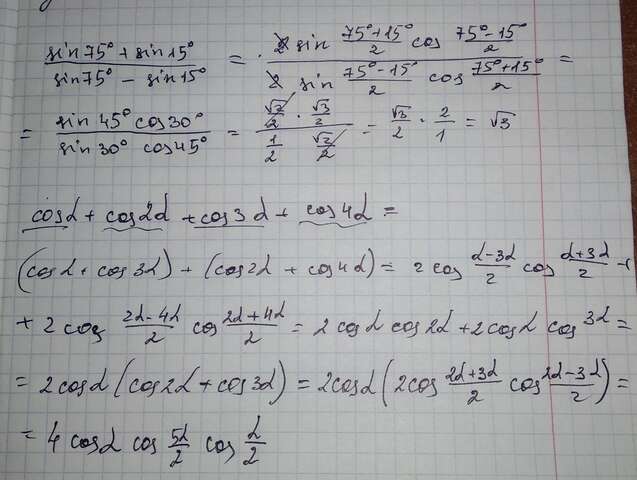 (sin 75° + sin 15°)/(sin 75° - sin 15°) = (2 sin (75°+15°)/2 cos (75°-15°)/2)/(2 sin (75°-15°)/2 cos (75°+15°)/2) =
= (sin 45° cos 30°)/(sin 30° cos 45°) = (√2/2 · √3/2)/(1/2 · √2/2) = √3/2 · 2/1 = √3
cosα + cos2α + cos3α + cos4α =
(cosα + cos3α) + (cos2α + cos4α) = 2 cos (α-3α)/2 cos (α+3α)/2 +
+ 2 cos (2α-4α)/2 cos (2α+4α)/2 = 2 cosα cos2α + 2 cosα cos3α =
= 2cosα (cos2α + cos3α) = 2cosα (2cos (2α+3α)/2 cos (2α-3α)/2) =
= 4 cosα cos 5α/2 cos α/2